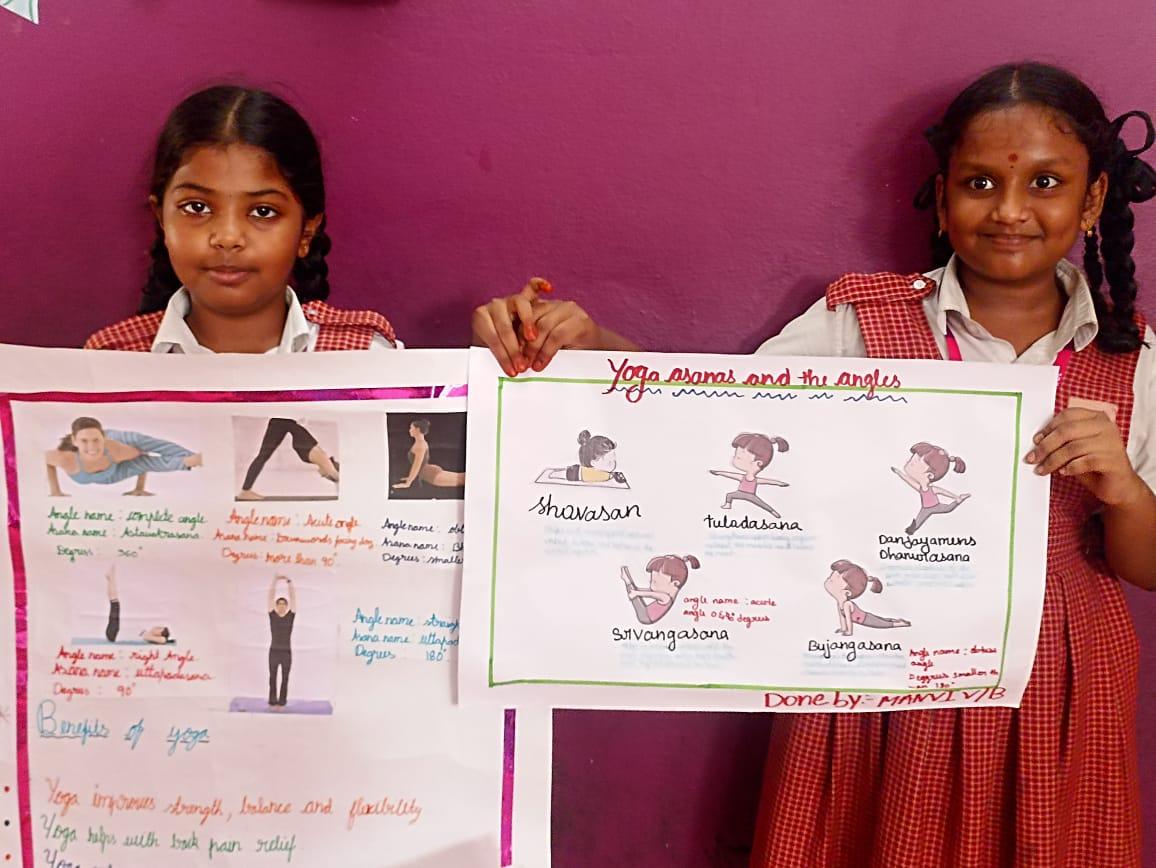 Angle name : complete angle
Asana name : Astavakrasana
Degress : 360°
Angle name : Acute angle
Asana name : Downwards facing dog
Degrees : more than 90°
Angle name :
Asana name :
Degrees : smaller
Angle name : right Angle
Asana name : uttapadasana
Degress : 90°
Angle name
Asana name :
Degrees : 180°
Benefits of yoga
Yoga improves strength, balance and flexibility
Yoga helps with back pain relief.
Yoga asanas and the angles
Shavasan
tuladasana
Danjayamuns
Dhanurasana
angle name : acute
angle
degrees
Srivangasana
Bujangasana
Angle name : obtuse
angle
Deggrus smaller th
an 180°
Done by:- MANVI V/B